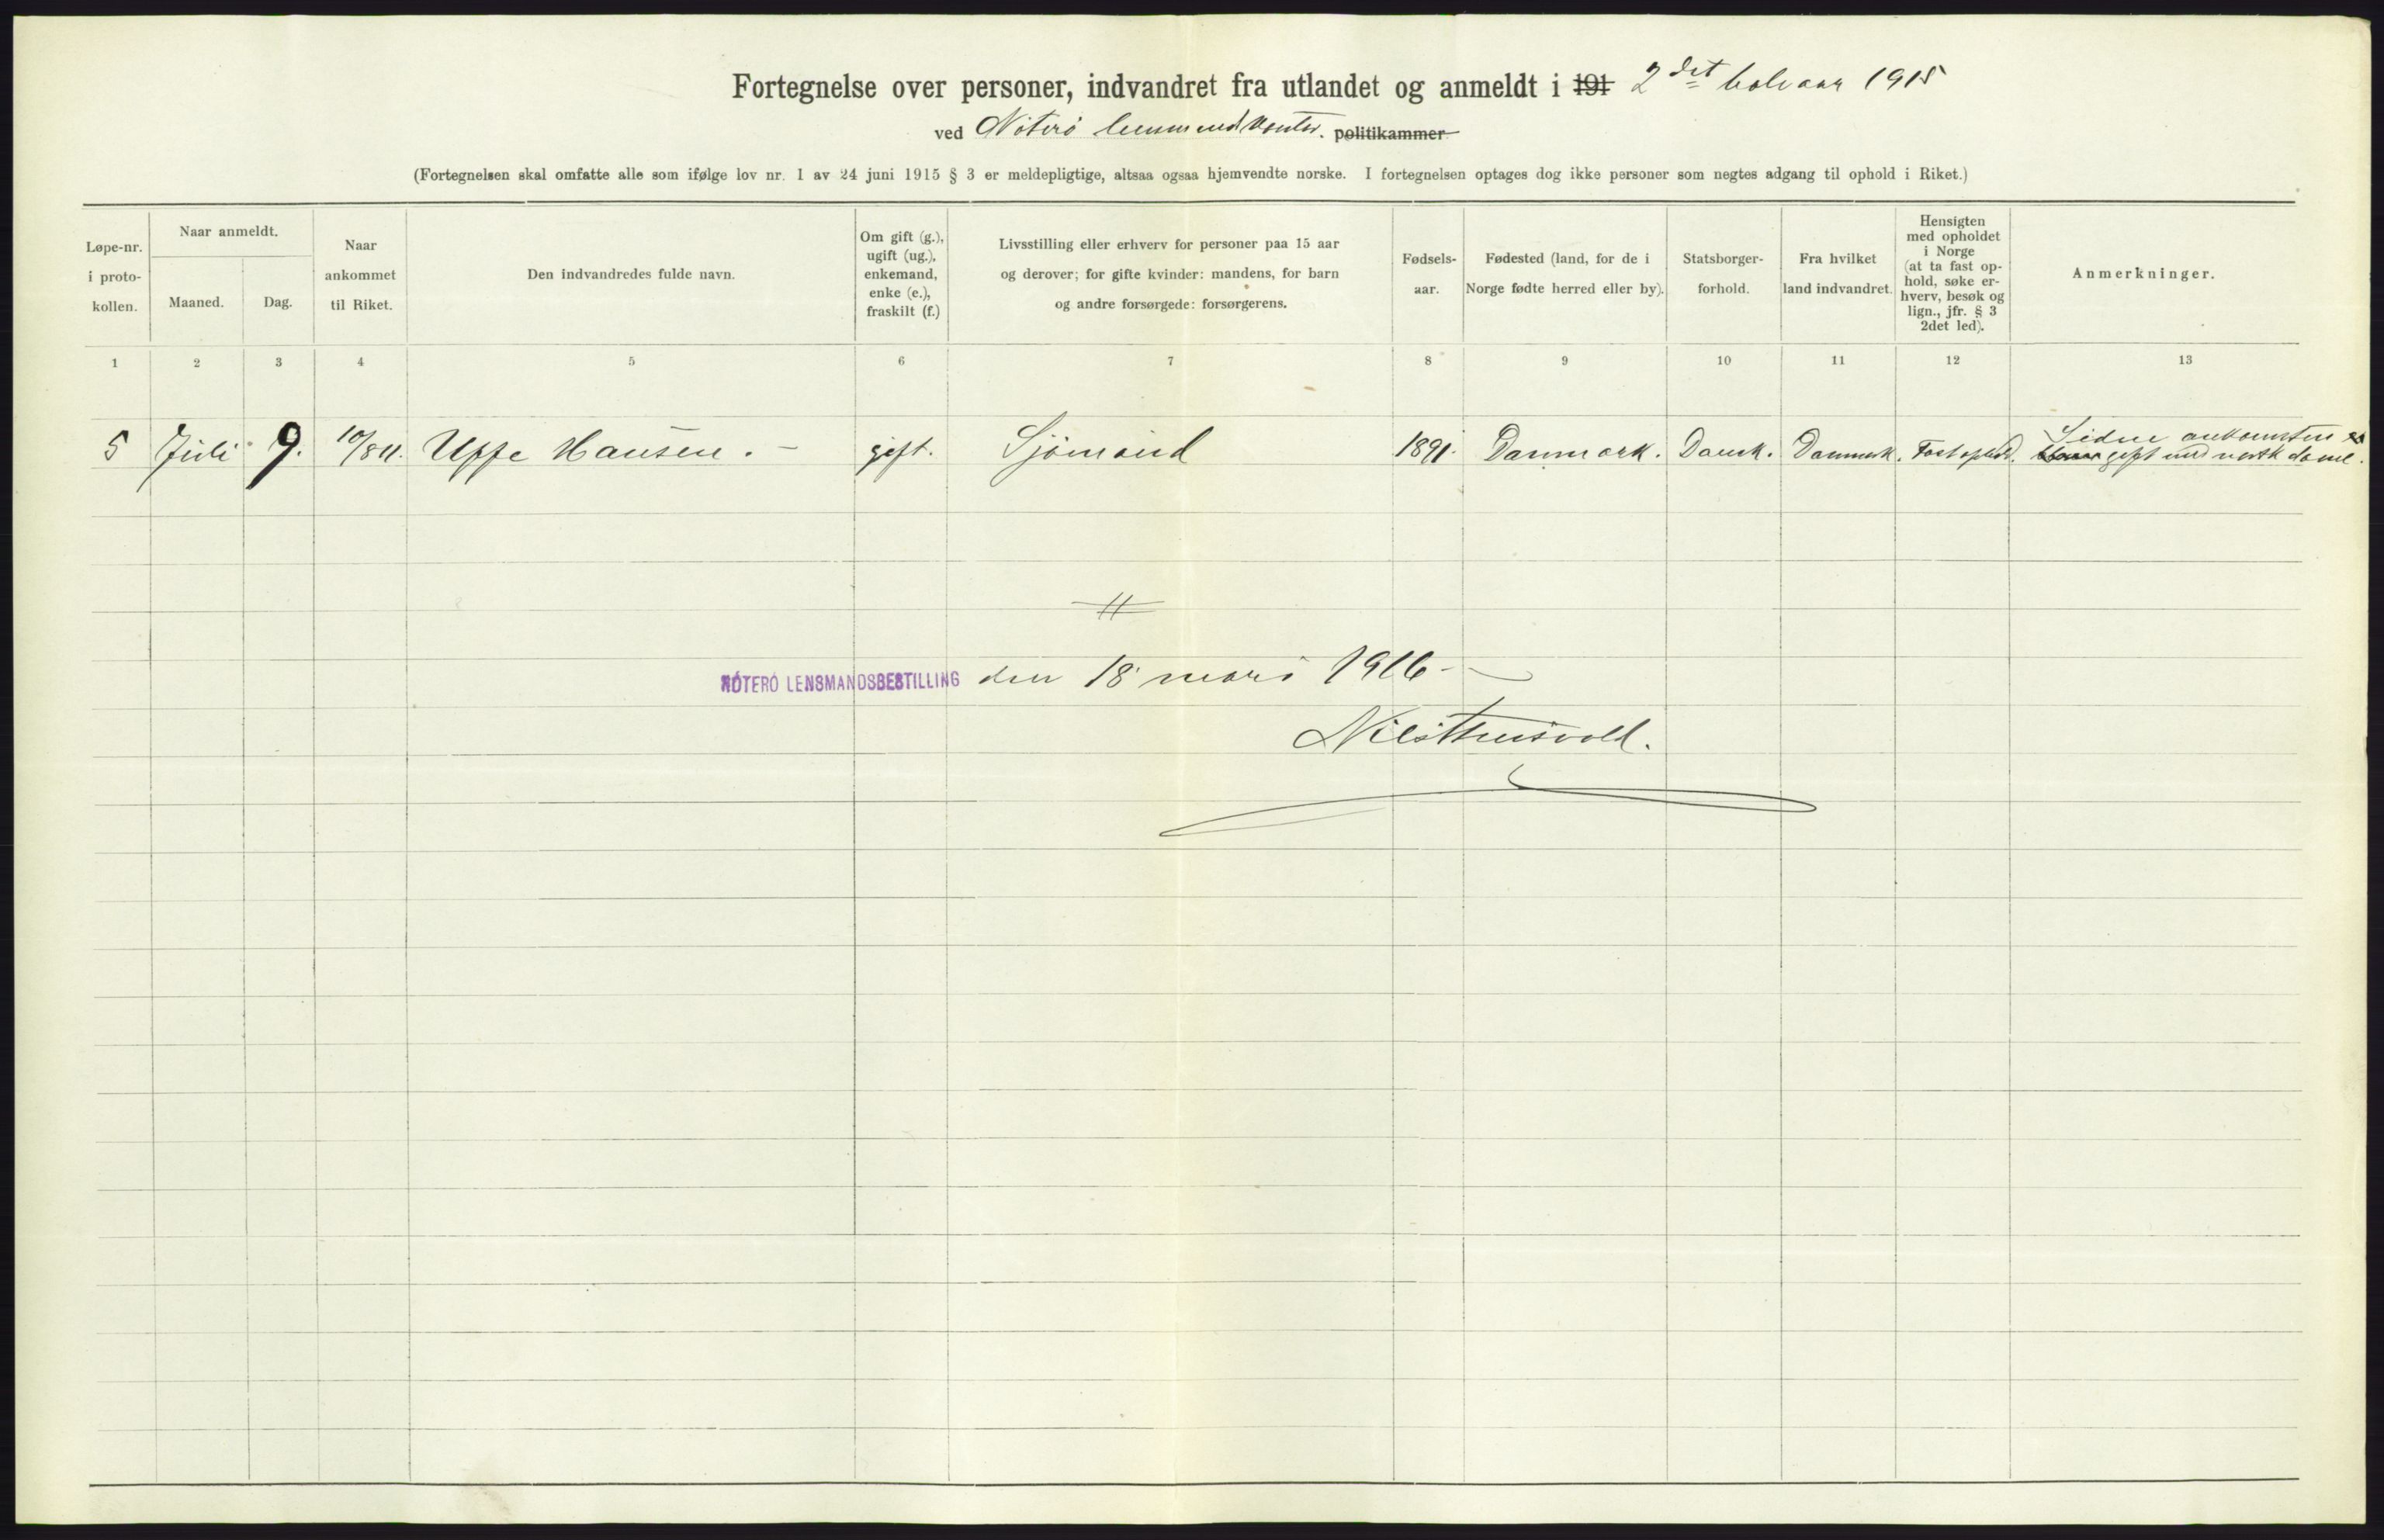 Fortegnelse over personer, indvandret fra utlandet og anmeldt i 191 2det halvaar 1915
ved Nøterø lensmandskontor. politikammer
(Fortegnelsen skal omfatte alle som ifølge lov nr. 1 av 24 juni 1915 § 3 er meldepligtige, altsaa ogsaa hjemvendte norske. I fortegnelsen optages dog ikke personer som negtes adgang til ophold i Riket.)
Løpe-nr.
i proto-
kollen.
Naar anmeldt.
Maaned.
Dag.
Naar
ankommet
til Riket.
Den indvandredes fulde navn.
Om gift (g.),
ugift (ug.),
enkemand,
enke (e.),
fraskilt (f.)
Livsstilling eller erhverv for personer paa 15 aar
og derover; for gifte kvinder: mandens, for barn
og andre forsørgede: forsørgerens.
Fødsels-
aar.
Fødested (land, for de i
Norge fødte herred eller by).
Statsborger-
forhold.
Fra hvilket
land indvandret.
Hensigten
med opholdet
i Norge
(at ta fast op-
hold, søke er-
hverv, besøk og
lign., jfr. § 3
2det led).
Anmerkninger.
1 2 3 4 5 6 7 8 9 10 11 12 13
5 Juli 9. 10/8 11. Uffe Hansen. – gift. Sjømand 1891. Danmark. Dansk. Danmark. Fast ophold. Siden ankomsten er
gift med norsk dame.
NÖTERÖ LENSMANDSBESTILLING den 18 mars 1916 –